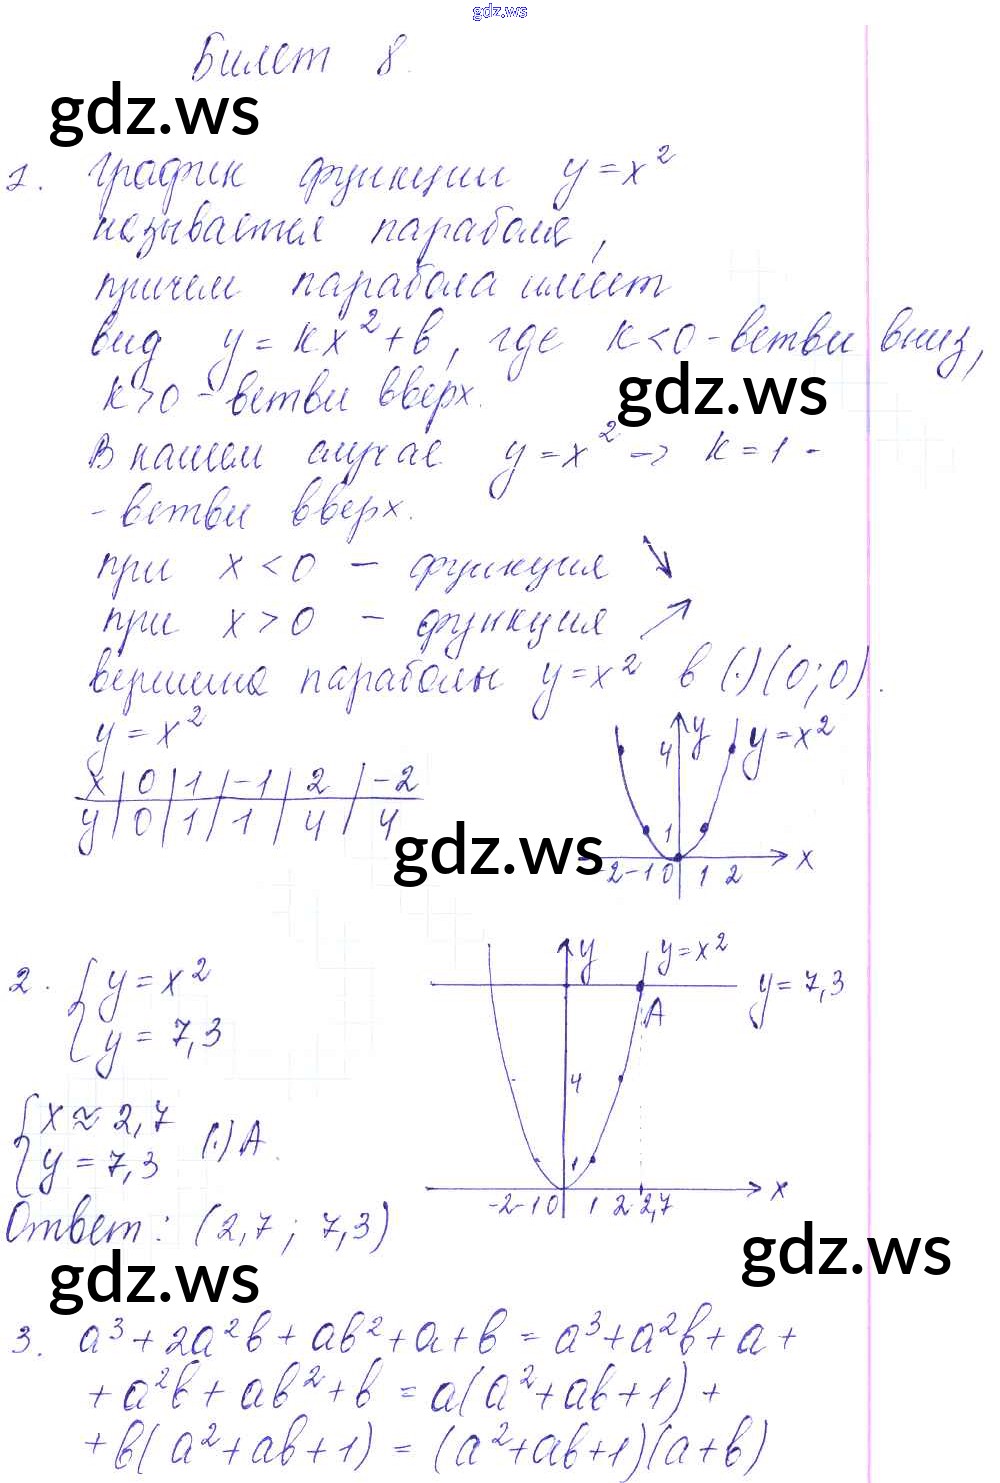 gdz.ws
Билет 8.
gdz.ws
1. График функции y=x²
называется парабола,
причем парабола имеет
вид y=kx²+b, где k<0-ветви вниз,
k>0-ветви вверх.
gdz.ws
В нашем случае y=x² → k=1-
-ветви вверх.
при x<0 - функция ↘
при x>0 - функция ↗
вершина параболы y=x² в (.)(0;0).
y=x²
x | 0 | 1 | -1 | 2 | -2
y | 0 | 1 | 1 | 4 | 4
gdz.ws
4 y y=x²
1
-2 -1 0 1 2 x
2. { y=x²
y=7,3
y y=x²
y=7,3
A
4
1
-2 -1 0 1 2 2,7 x
{ x≈2,7
y=7,3 (.)A.
Ответ: (2,7; 7,3)
gdz.ws
gdz.ws
3. a³+2a²b+ab²+a+b=a³+a²b+a+
+a²b+ab²+b=a(a²+ab+1)+
+b(a²+ab+1)=(a²+ab+1)(a+b)